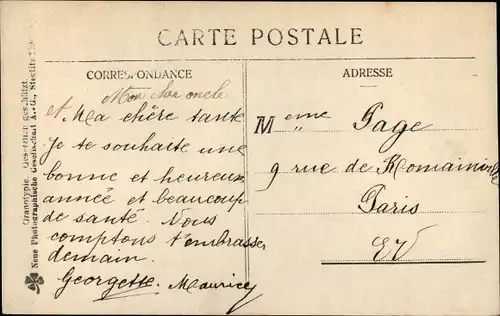 CARTE POSTALE
CORRESPONDANCE
Mon cher oncle
et Ma chère tante
Je te souhaite une
bonne et heureuse
année et beaucoup
de santé. Nous
comptons t'embrasser
demain.
Georgette. Maurice
ADRESSE
Meme Page
9 rue de Romainville
Paris
EV
Neue Photographische Gesellschaft A.-G., Steglitz